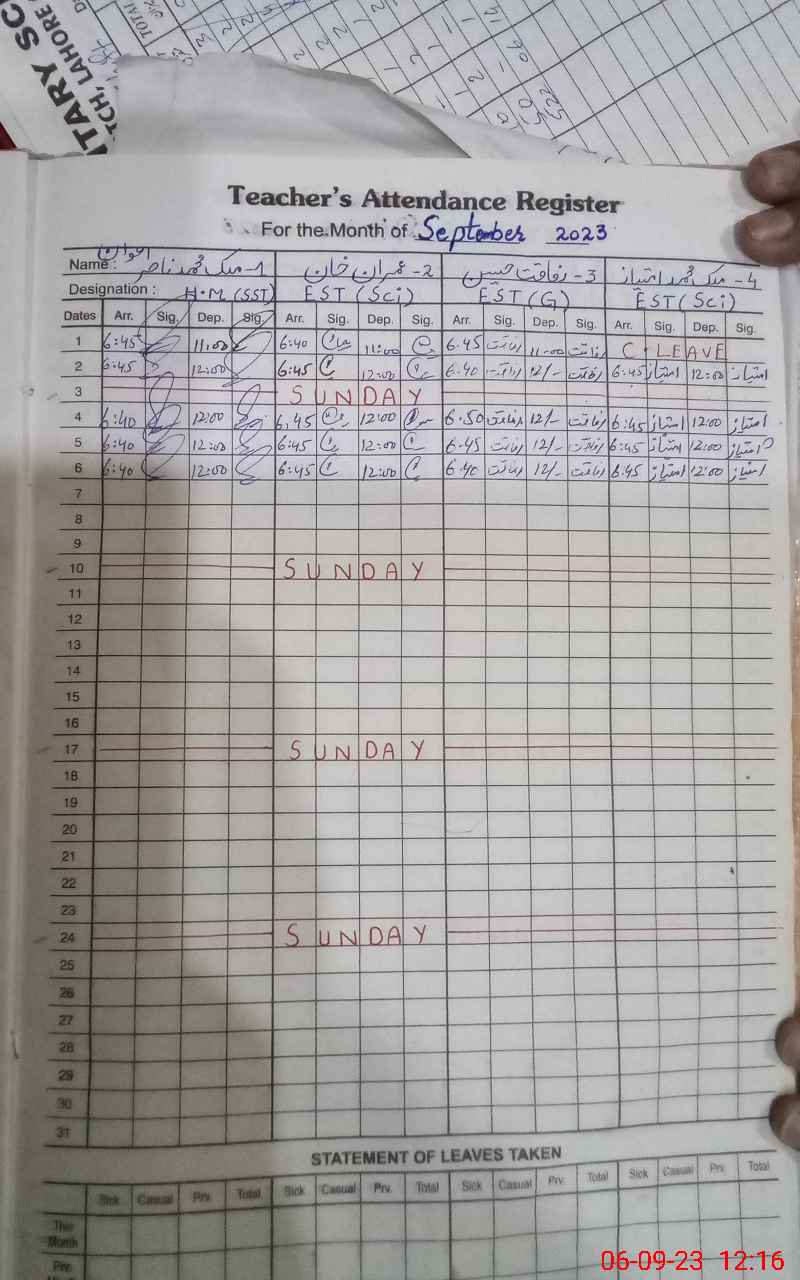 ITARY SC
TCH, LAHORE
TOTAL
Teacher's Attendance Register
For the Month of September 2023
Name : 1- ملک محمد ناصر اعوان 2- عمران خان 3- رفاقت حسین 4- ملک محمد امتیاز
Designation : H.M (SST) EST (Sci) EST (G) EST (Sci)
Dates Arr. Sig. Dep. Sig. Arr. Sig. Dep. Sig. Arr. Sig. Dep. Sig. Arr. Sig. Dep. Sig.
1 6:45 11:00 6:40 11:00 6.45 رفاقت 11-00 رفاقت C.LEAVE
2 6:45 12:00 6:45 12:00 6.40 رفاقت 12/- رفاقت 6:45 امتیاز 12:00 امتیاز
3 SUNDAY
4 6:40 12:00 6.45 12:00 6.50 رفاقت 12/- رفاقت 6:45 امتیاز 12:00 امتیاز
5 6:40 12:00 6:45 12:00 6.45 رفاقت 12/- رفاقت 6:45 امتیاز 12:00 امتیاز
6 6:40 12:00 6:45 12:00 6.40 رفاقت 12/- رفاقت 6.45 امتیاز 12:00 امتیاز
7
8
9
10 SUNDAY
11
12
13
14
15
16
17 SUNDAY
18
19
20
21
22
23
24 SUNDAY
25
26
27
28
29
30
31
STATEMENT OF LEAVES TAKEN
Sick Casual Prv. Total Sick Casual Prv. Total Sick Casual Prv. Total Sick Casual Prv. Total
This Month
Pre.
06-09-23 12:16